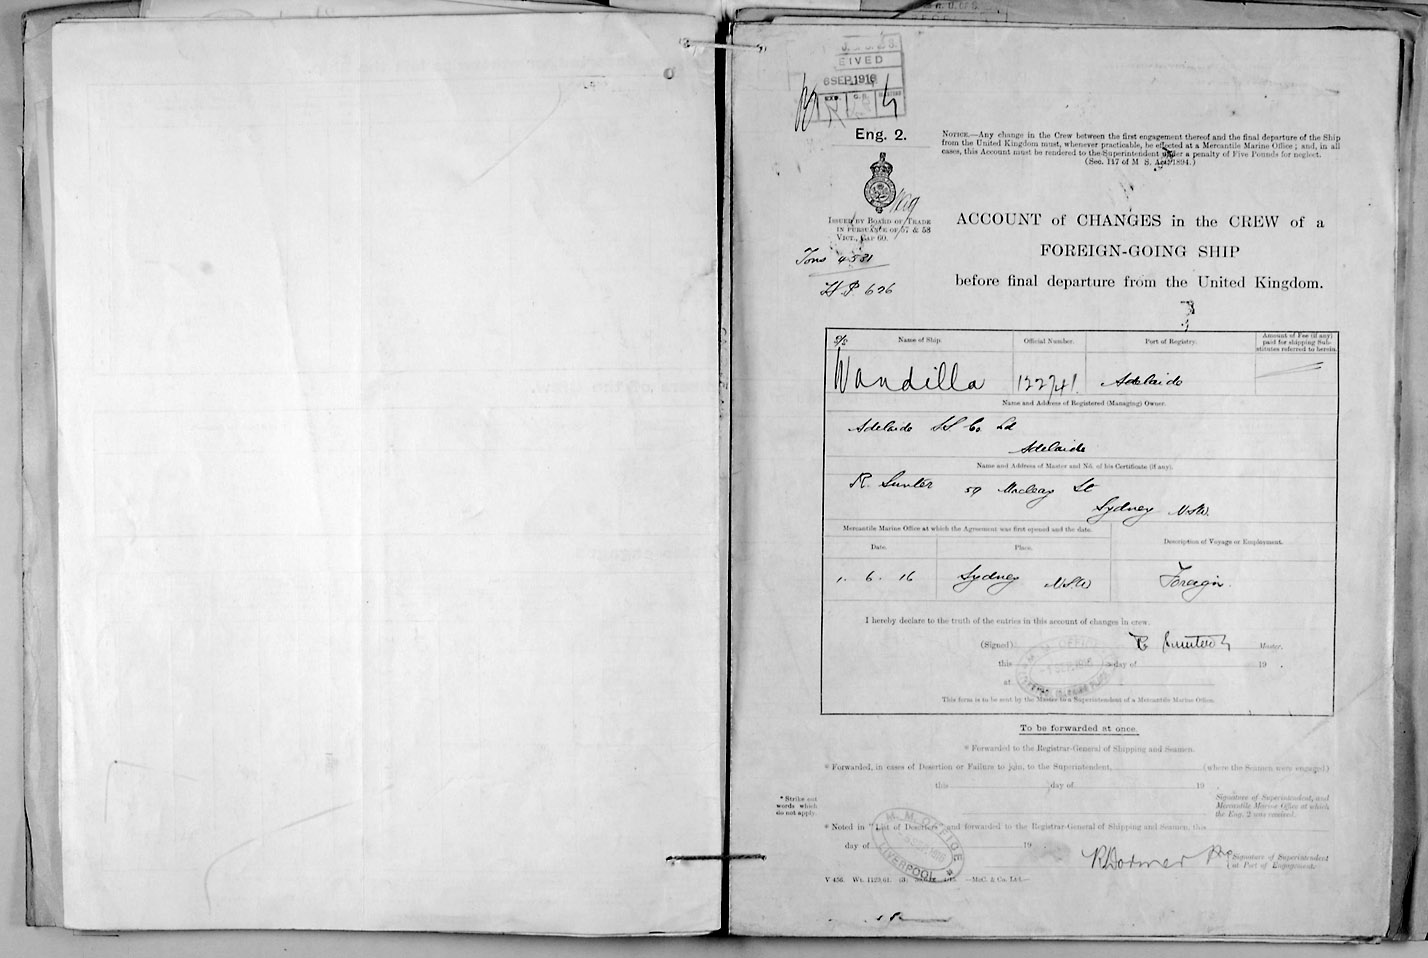 EIVED
6 SEP. 1916
Eng. 2.
NOTICE.—Any change in the Crew between the first engagement thereof and the final departure of the Ship
from the United Kingdom must, whenever practicable, be effected at a Mercantile Marine Office; and, in all
cases, this Account must be rendered to the Superintendent under a penalty of Five Pounds for neglect.
(Sec. 117 of M. S. Act, 1894.)
ISSUED BY BOARD OF TRADE
IN PURSUANCE OF 57 & 58
VICT., CAP 60.
Tons 4531
H P. 626
ACCOUNT of CHANGES in the CREW of a
FOREIGN-GOING SHIP
before final departure from the United Kingdom.
Name of Ship.
Official Number.
Port of Registry.
Amount of Fee (if any)
paid for shipping Sub-
stitutes referred to herein.
Wandilla
122741
Adelaide
Name and Address of Registered (Managing) Owner.
Adelaide SS Co Ld
Adelaide
Name and Address of Master and No. of his Certificate (if any).
R. Sunter 59 Macleay St
Sydney NSW.
Mercantile Marine Office at which the Agreement was first opened and the date.
Description of Voyage or Employment.
Date.
Place.
1. 6. 16
Sydney NSW
Foreign.
I hereby declare to the truth of the entries in this account of changes in crew.
(Signed) R Sunter Master.
this day of 19 .
at
This form is to be sent by the Master to a Superintendent of a Mercantile Marine Office.
To be forwarded at once.
* Forwarded to the Registrar-General of Shipping and Seamen.
* Forwarded, in cases of Desertion or Failure to join, to the Superintendent, (where the Seamen were engaged)
this day of 19
* Strike out
words which
do not apply.
Signature of Superintendent, and
Mercantile Marine Office at which
the Eng. 2 was received.
* Noted in "List of Deserters" and forwarded to the Registrar-General of Shipping and Seamen, this
day of 19
M. M. OFFICE
LIVERPOOL
Signature of Superintendent
at Port of Engagement.
—McC. & Co. Ltd.—